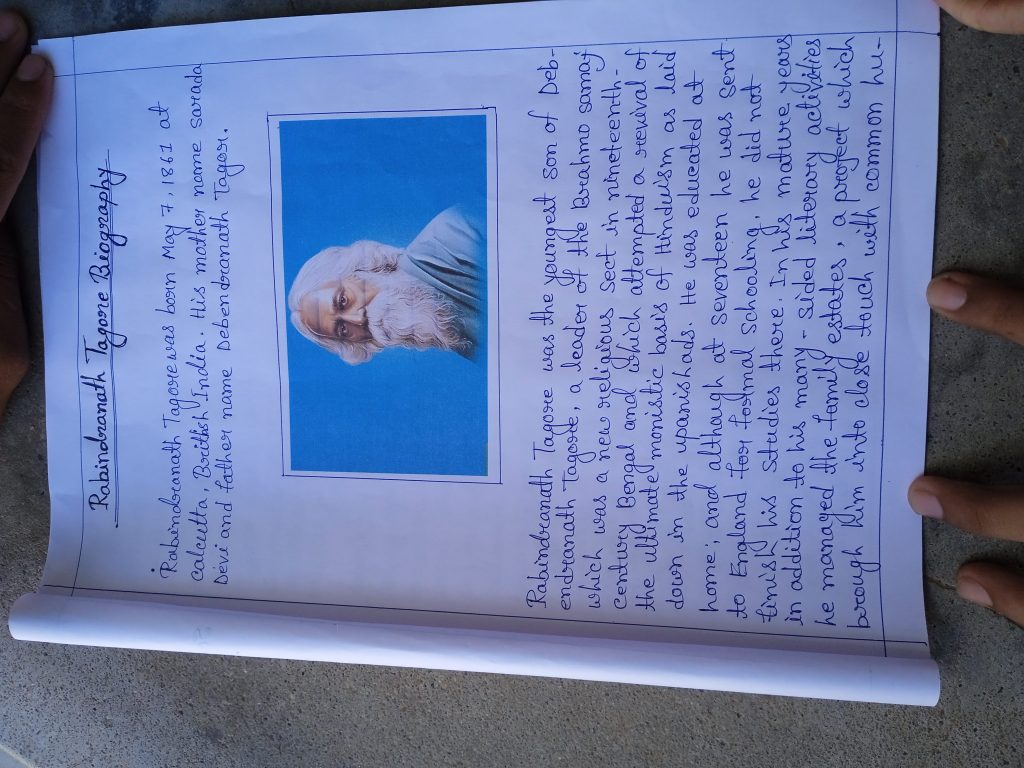 Rabindranath Tagore Biography
Rabindranath Tagore was born May 7, 1861 at
Calcutta, British India. His mother name sarada
Devi and father name Debendranath Tagor.
Rabindranath Tagore was the youngest son of Deb-
endranath Tagore, a leader of the Brahmo samaj
which was a new religious sect in nineteenth-
century Bengal and which attempted a revival of
the ultimate monistic basis of Hinduism as laid
down in the upanishads. He was educated at
home; and although at seventeen he was sent
to England for formal schooling, he did not
finish his studies there. In his mature years
in addition to his many-sided literary activities
he managed the family estates, a project which
brough him into close touch with common hu-